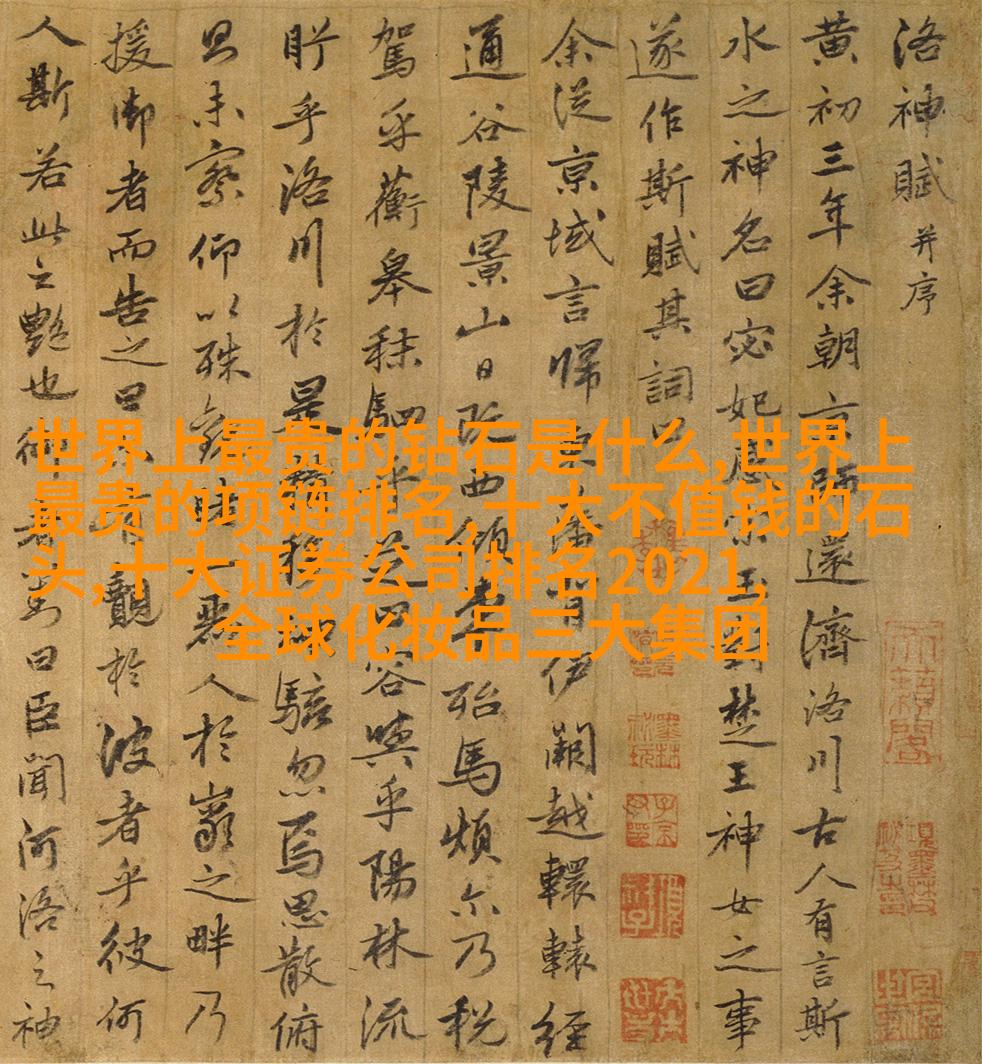 洛神賦并序
黄初三年余朝京師還濟洛川古人有言斯
水之神名曰宓妃感宋玉對楚王神女之事
遂作斯賦其詞曰
余從京域言歸東藩背伊闕越轘轅經
通谷陵景山日既西傾車殆馬煩尔乃税
駕乎蘅皋秣駟乎芝田容與乎陽林流
盻乎洛川於是精移神駭忽焉思散俯
則未察仰以殊觀睹一麗人於巖之畔乃
援御者而告之曰尔有覿於彼者乎彼何
人斯若此之艷也御者對曰臣聞河洛之神
世界上最贵的钻石是什么,世界上
最贵的项链排名,十大不值钱的石
头,十大证券公司排名2021,
全球化妆品三大集团